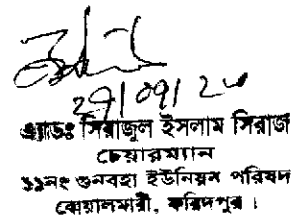 ২৭/০৭/২০
এ্যাডঃ সিরাজুল ইসলাম সিরাজ
চেয়ারম্যান
১১নং গুনবহা ইউনিয়ন পরিষদ
বোয়ালমারী, ফরিদপুর ।